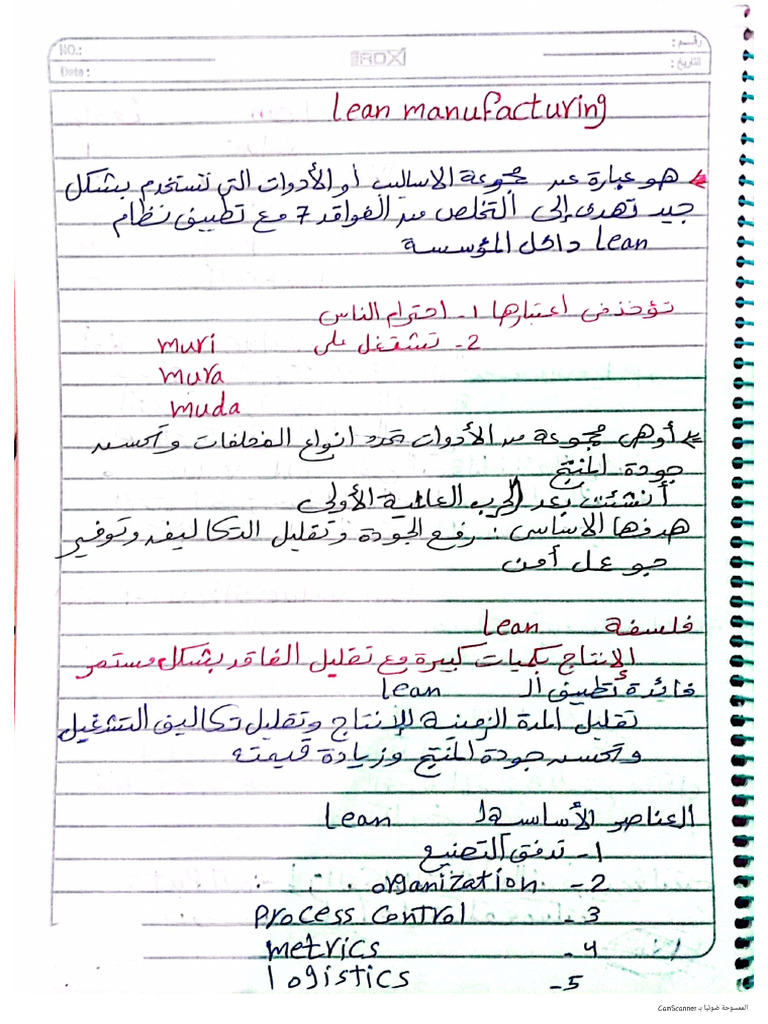 رقم :
NO.:
التاريخ :
Date :
ROX
lean manufacturing
هو عبارة عن مجموعة الاساليب أو الأدوات التي تستخدم بشكل
جيد تهدف إلى التخلص من الفواقد 7 مع تطبيق نظام
lean داخل المؤسسة
تؤخذ فى اعتبارها 1- احترام الناس
2- تشتغل على muri
mura
muda
أو هى مجموعة من الأدوات تحدد انواع المخلفات وتحسين
جودة المنتج
أنشئت بعد الحرب العالمية الأولى
هدفها الاساسى : رفع الجودة وتقليل التكاليف وتوفير
جو عمل أمن
فلسفة lean
الإنتاج بكميات كبيرة مع تقليل الفاقد بشكل مستمر
فائدة تطبيق الـ lean
تقليل المدة الزمنية للإنتاج وتقليل تكاليف التشغيل
وتحسين جودة المنتج وزيادة قيمته
العناصر الأساسية لـ lean
1- تدفق التصنيع
2- organization
3- Process control
4- metrics
5- logistics
الممسوحة ضوئيا بـ CamScanner